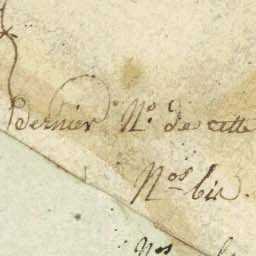 Dernier N.º de cette
N.ºs bis.
N.ºs